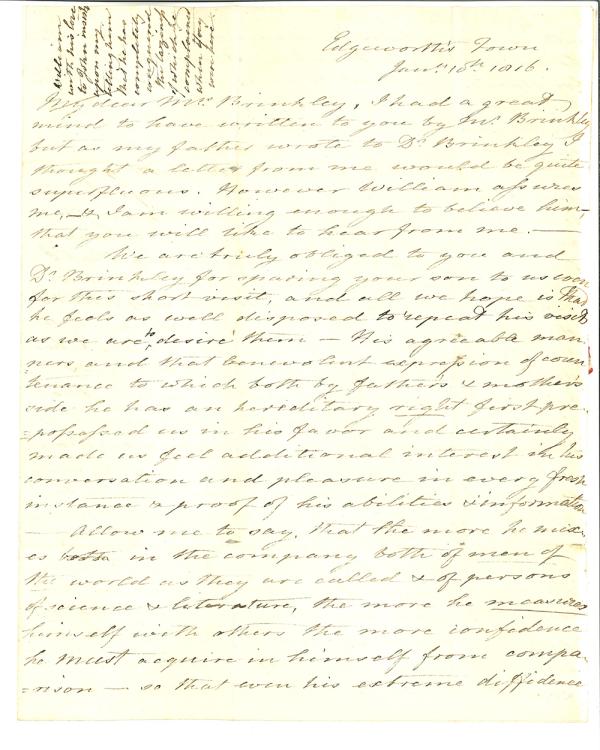 William
with his love
to John insists
upon my
telling him
that he has
completely
conquered
the laziness
of which he
complained
when you
were here
Edgeworth's Town
Jany. 10th. 1816.
My dear Mrs Brinkley, I had a great
mind to have written to you by Mr. Brinkley
but as my father wrote to Dr. Brinkley I
thought a letter from me would be quite
superfluous. However William assures
me, & I am willing enough to believe him,
that you will like to hear from me. —
We are truly obliged to you and
Dr. Brinkley for sparing your son to us even
for this short visit, and all we hope is that
he feels as well disposed to repeat his visits
as we are to desire them — His agreeable man-
ners and that benevolent expression of coun
tenance to which both by fathers & mothers
side he has an hereditary right first pre-
=possessed us in his favor and certainly
made us feel additional interest in his
conversation and pleasure in every fresh
instance & proof of his abilities & information
— Allow me to say, that the more he mix-
es both in the company both of men of
the world as they are called & of persons
of science & literature, the more he measures
himself with others the more confidence
he must acquire in himself from compa-
=rison — so that even his extreme diffidence